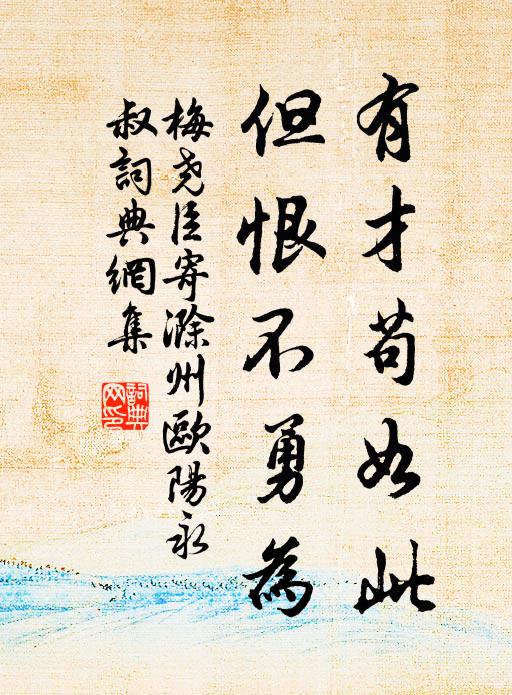 有才苟如此
但恨不勇為
梅堯臣寄滁州歐陽永
叔詞典網集
詞典
网印